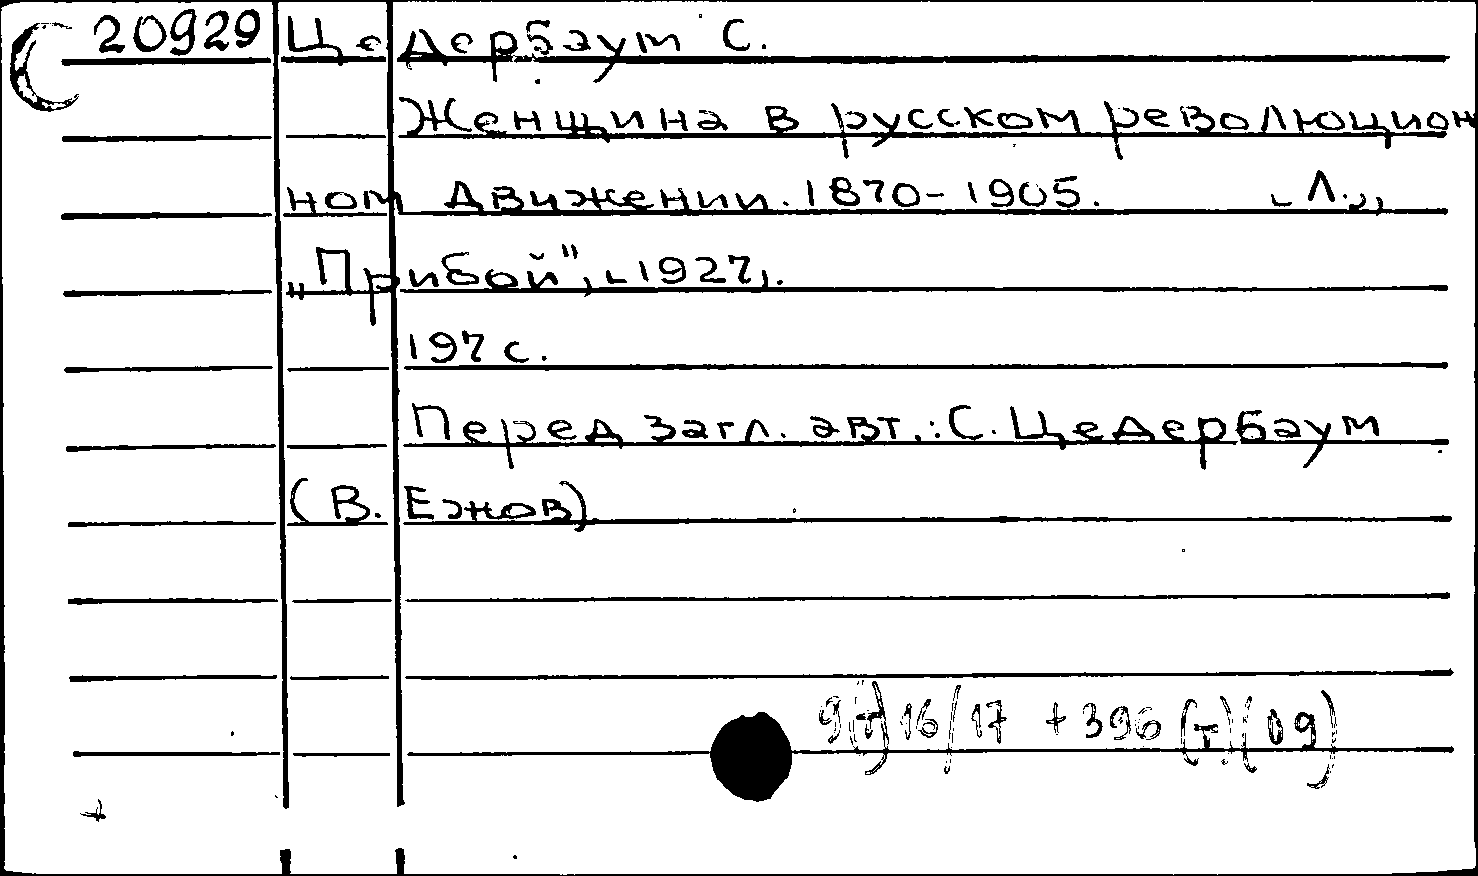 20929 Цедербаум С.
Женщина в русском революцион
ном движении. 1870-1905. [Л.],
„Прибой", [1927].
197 с.
Перед загл. авт.: С. Цедербаум
(В. Ежов)
9(т)16/17 + 396(т)(09)